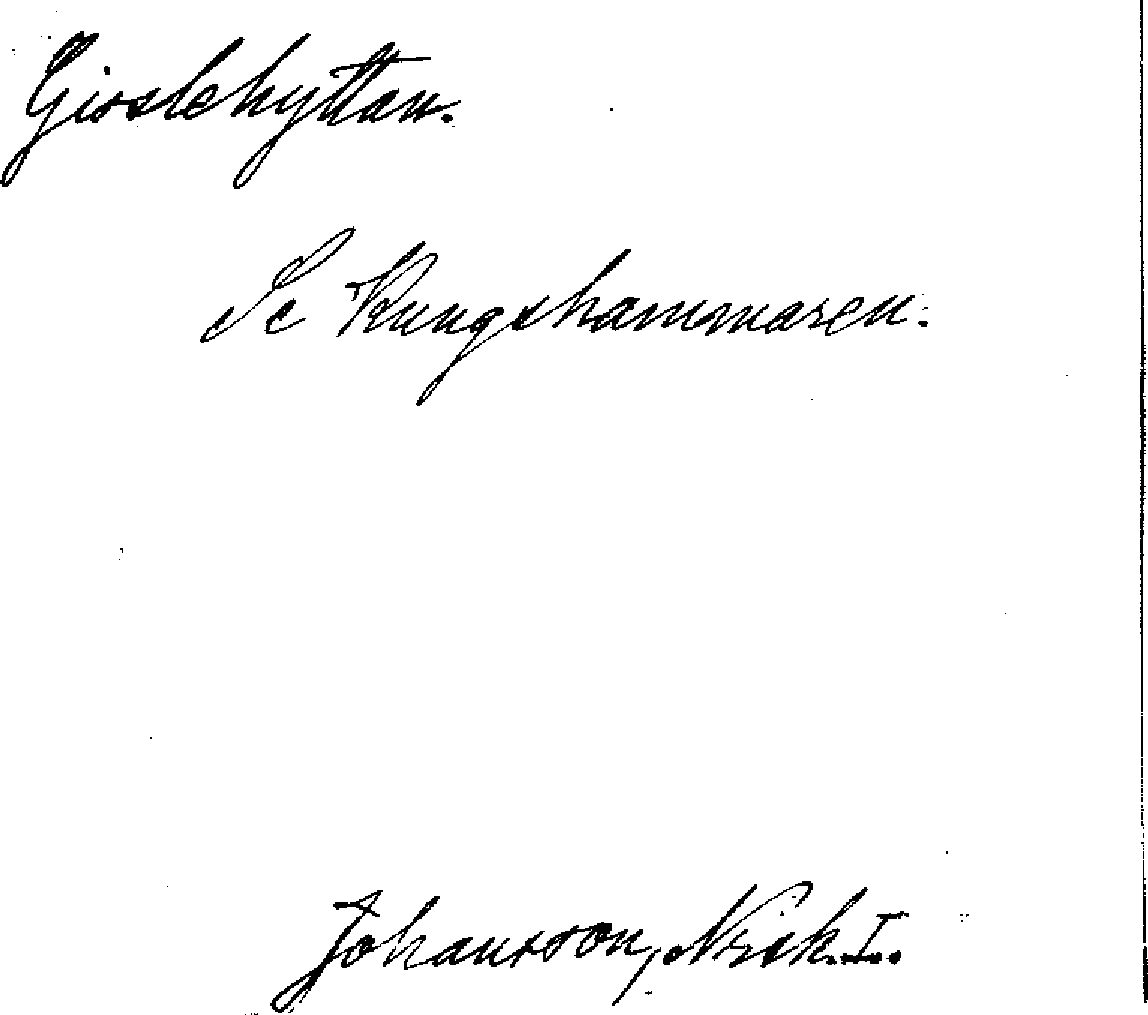 Gisslehyttan.
Se Kungshammaren.
Johansson, Nrik. I.